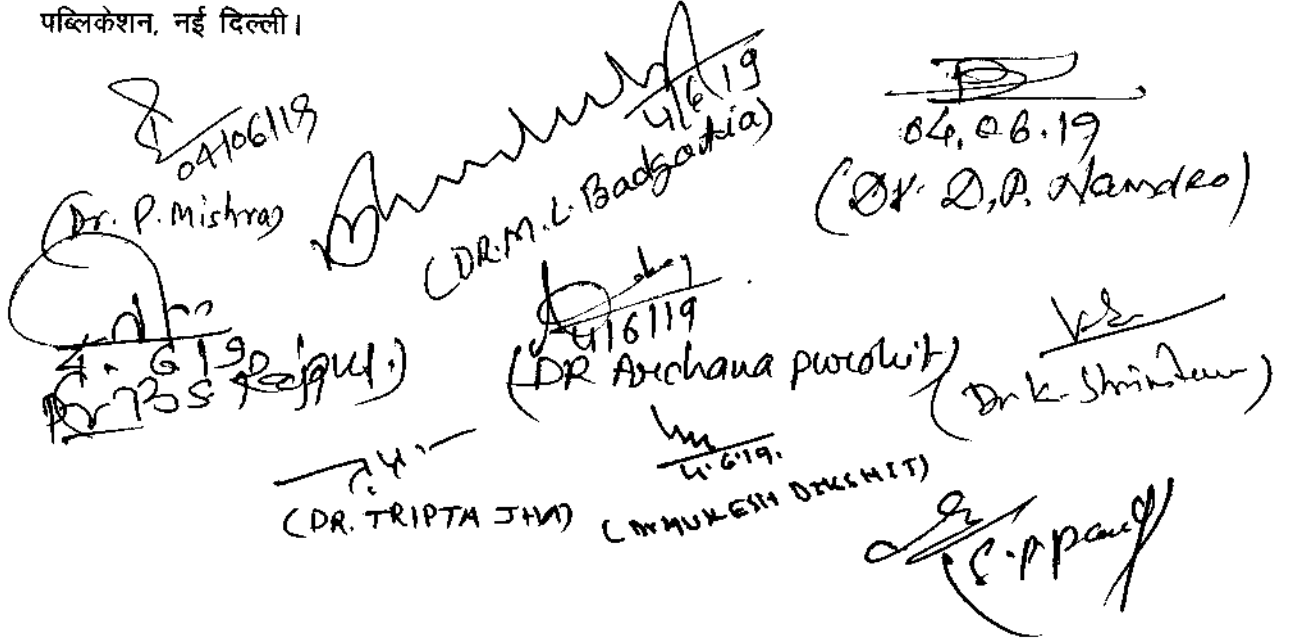 पब्लिकेशन, नई दिल्ली।
04/06/19
(Dr. P. Mishra)
4/6/19
(DR. M. L. Badgotia)
04.06.19
(Dr. D.P. Namdeo)
4.6.19
Rajput.)
4/6/19
(DR Archana purohit)
Dr K.
(DR. TRIPTA JHA)
4.6.19.
(Dr MUKESH DIKSHIT)